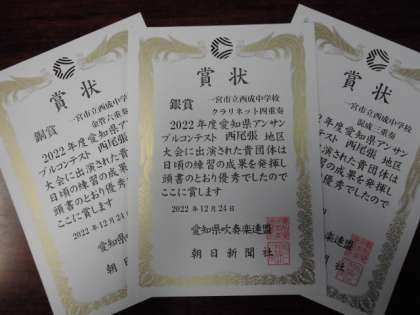 賞状
一宮市立西成中学校
金管六重奏
2022年度愛知県アンサン
ブルコンテスト 西尾張
大会に出演された貴団
日頃の練習の成果を
頭書のとおり優秀で
ここに賞します
2022年12月24
愛知県吹奏
朝日新
賞状
銀賞
一宮市立西成中学校
クラリネット四重奏
2022年度愛知県アンサン
ブルコンテスト 西尾張 地区
大会に出演された貴団体は
日頃の練習の成果を発揮し
頭書のとおり優秀でしたので
ここに賞します
2022年12月24日
愛知県吹奏楽連盟
朝日新聞社
賞状
一宮市立西成中学校
年度愛知県アンサン
コンテスト 西尾張 地区
出演された貴団体は
練習の成果を発揮し
のとおり優秀でしたので
賞します
年12月24日
愛知県吹奏楽連盟
朝日新聞社